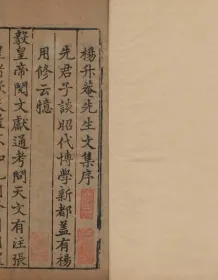 楊升菴先生文集序
先君子談昭代博學新都蓋有楊
用修云憶
毅皇帝閱文獻通考問天文有注張